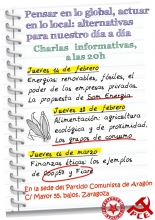 Pensar en lo global, actuar
en lo local: alternativas
para nuestro día a día
Charlas informativas,
a las 20h
Jueves 14 de febrero
Energías: renovables, fósiles, el
poder de las empresas privadas.
La propuesta de Som Energia
Jueves 21 de febrero
Alimentación: agricultura
ecológica y de proximidad.
Los grupos de consumo
Jueves 14 de marzo
Finanzas éticas: los ejemplos
de Coop57 y Fiare
En la sede del Partido Comunista de Aragón
C/ Mayor 35, bajos, Zaragoza